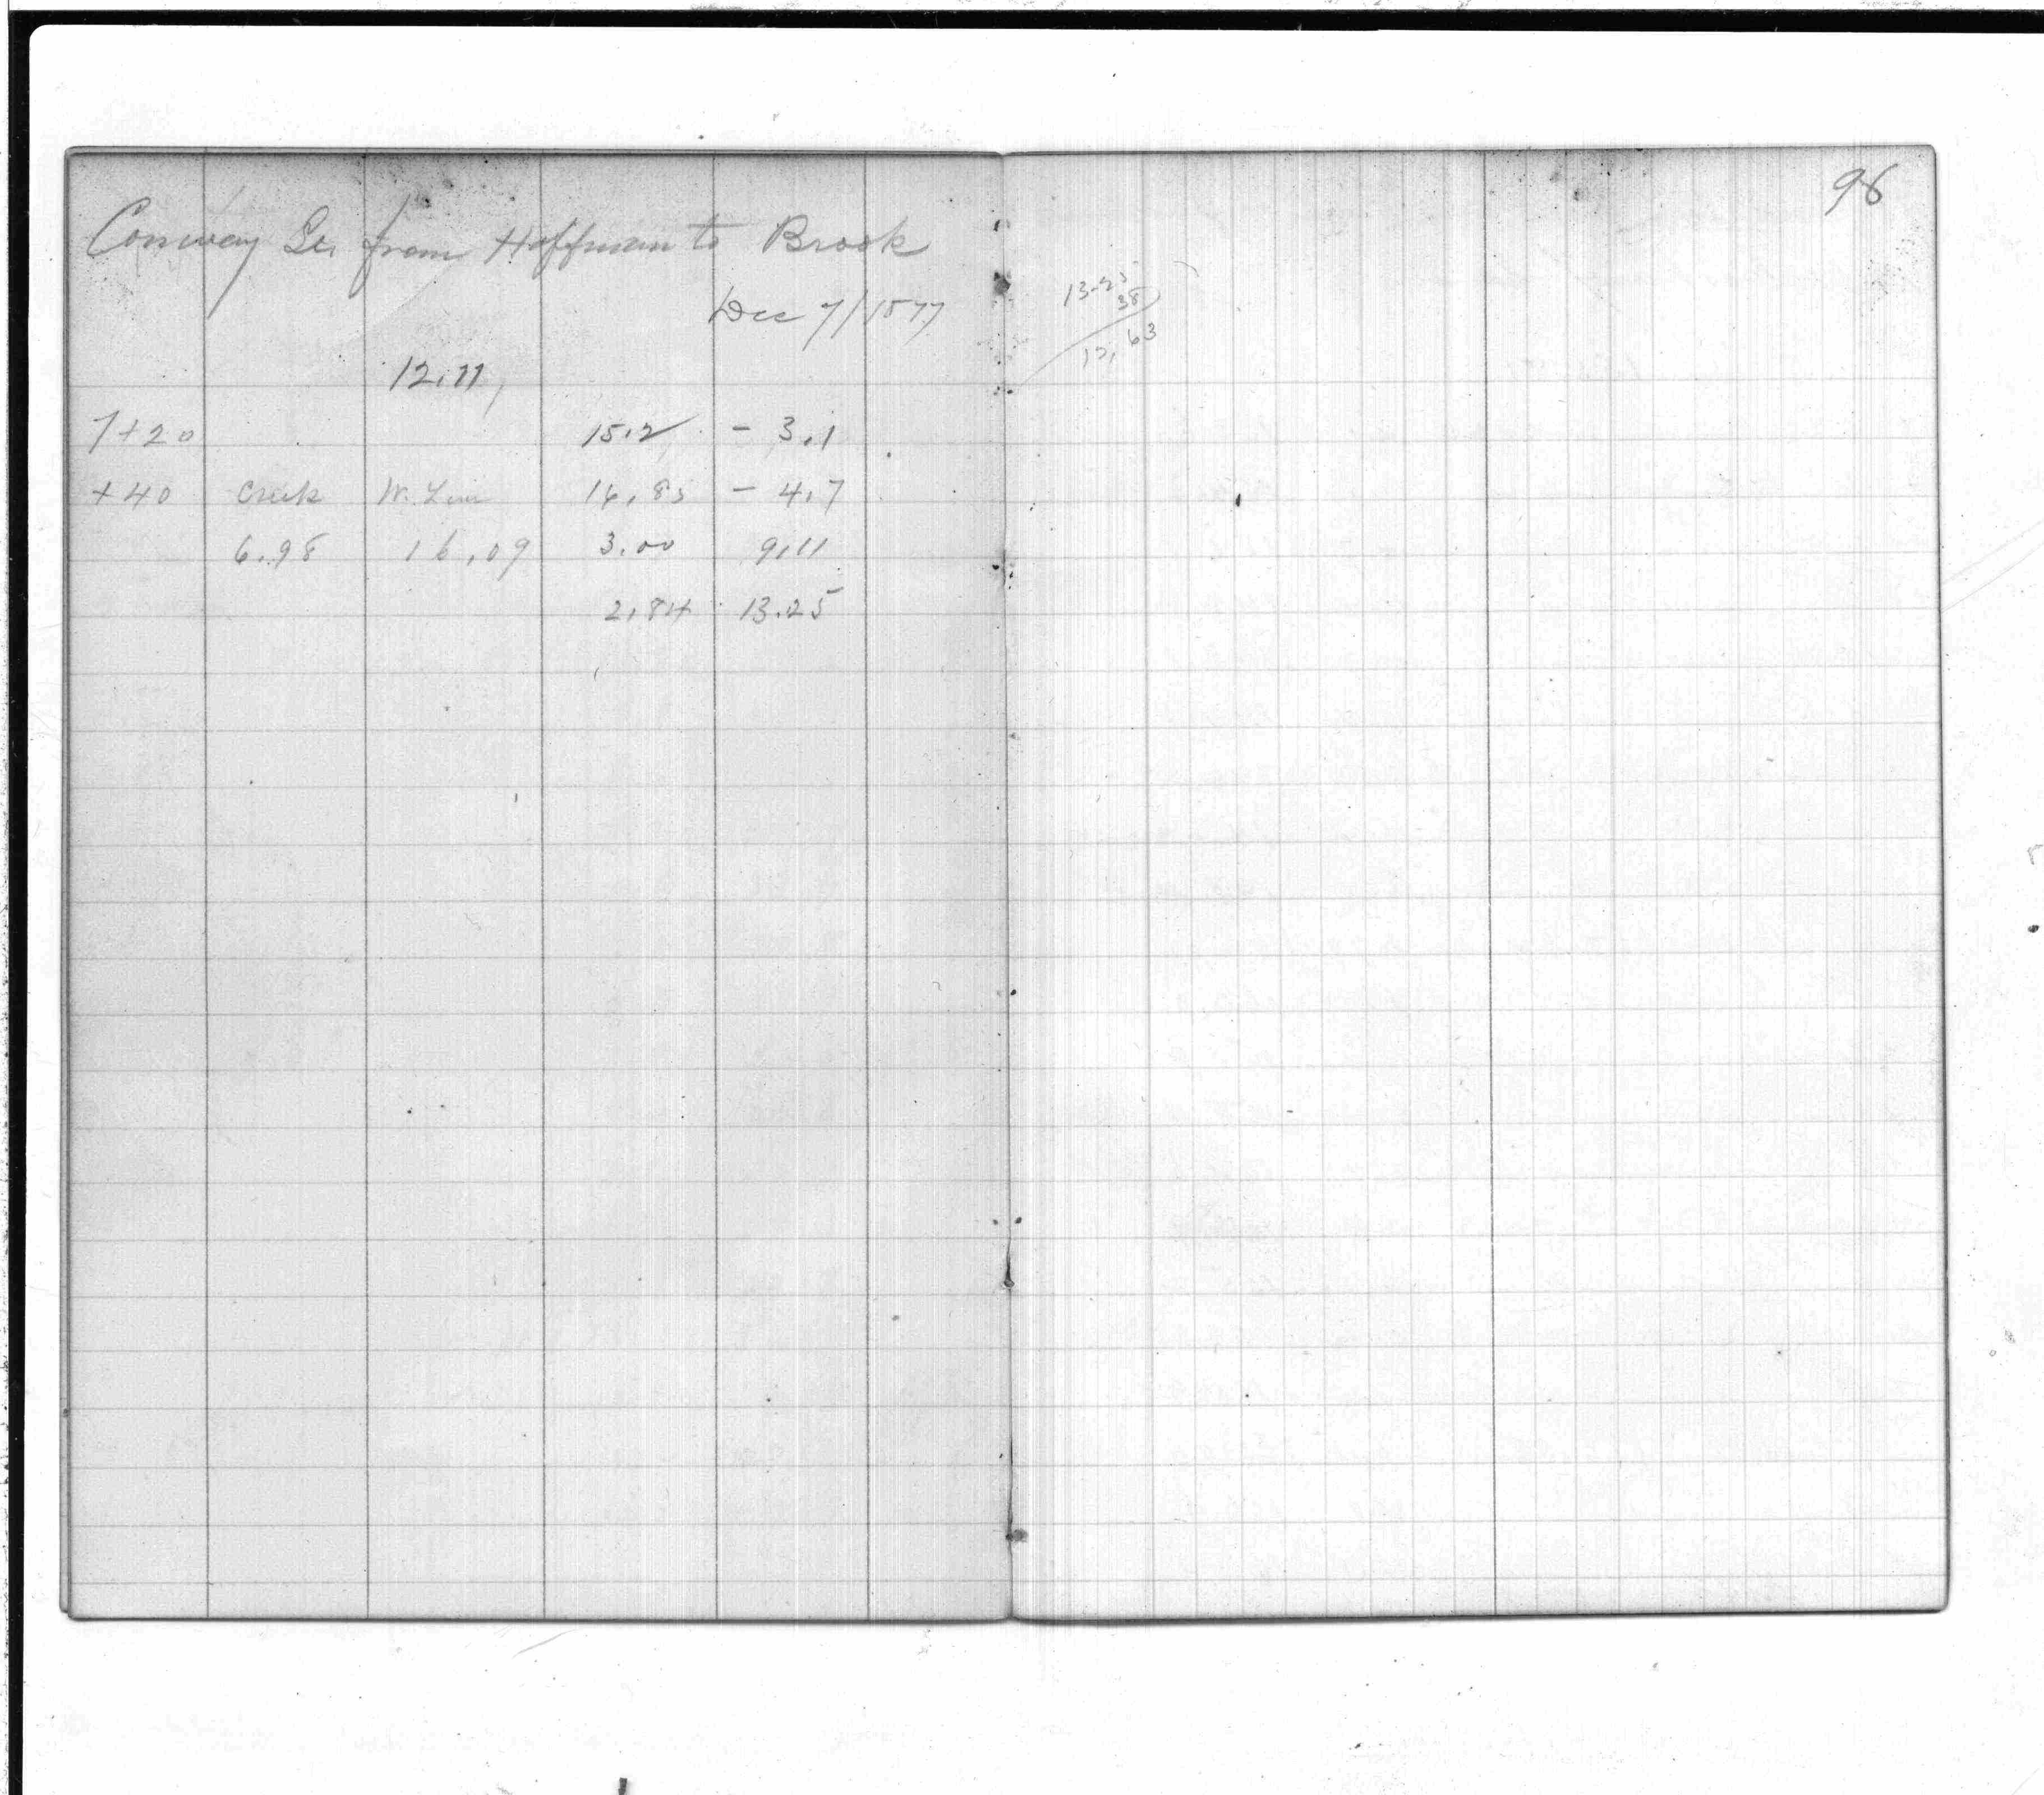 Conway St. from Hoffman to Brook
Dec 7/1877
12.11
7+20 15.2 - 3.1
+40 Creek W. Line 16.85 - 4.7
6.98 16.09 3.00 9.11
2.84 13.25
98
13.25
38
13.63